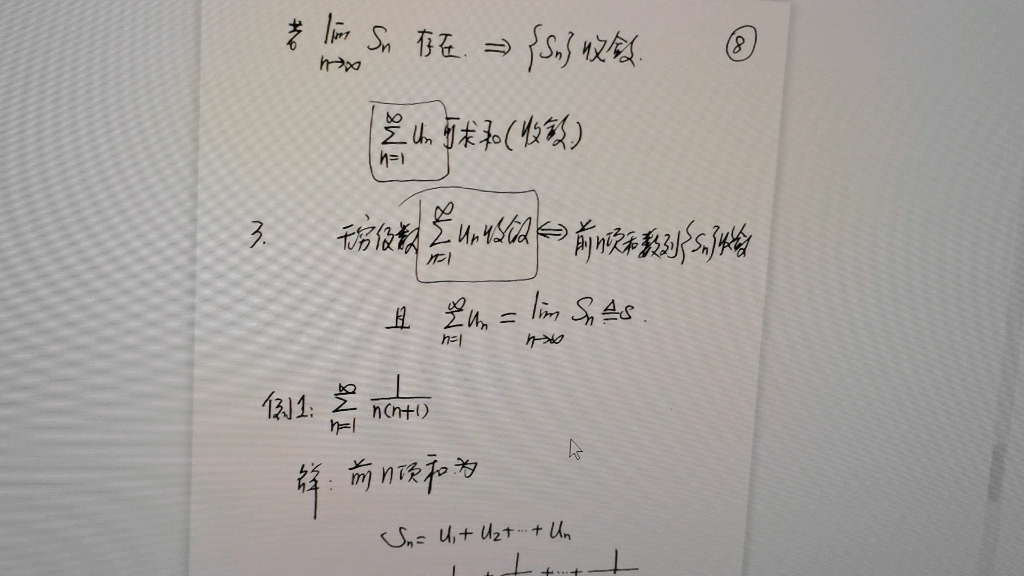 若 lim n→∞ Sn 存在. ⇒ {Sn} 收敛. ⑧
∞ ∑ n=1 un 可求和(收敛)
3. 无穷级数 ∞ ∑ n=1 un 收敛 ⇔ 前n项和数列{Sn}收敛
且 ∞ ∑ n=1 un = lim n→∞ Sn ≜ s.
例1: ∞ ∑ n=1 1/n(n+1)
解: 前n项和为
Sn = u1 + u2 + ··· + un